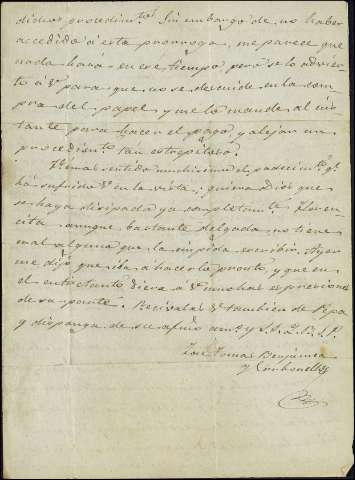 dichos procedimtos. Sin embargo de no haber
accedido á esta prorroga, me parece que
nada hará en ese tiempo pero se lo advier-
to á V. para que no se descuide en la com-
pra del papel y me lo mande al ins-
tante para hacer el pago, y alejar un
procedimto. tan estrepitoso.
Hemos sentido muchisimo el padecimto. qe.
há sufrido V. en la vista: quiera Dios que
se haya disipada ya completamte. Floren-
cita aunque bastante delgada no tiene
mal alguno que la impida escribir. Ayer
me dijo que iba á hacerlo pronto, y que en
el entretanto diera á V. muchas espresiones
de su parte. Recivalas V. tambien de Pepa
y disponga de su afmo. am. y S. S. Q. B. S. M.
José Tomas Benjumea
y